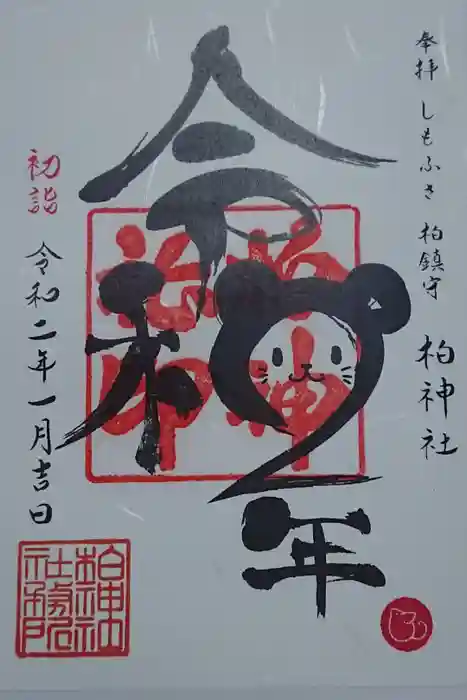 奉拝 しもふさ 柏鎮守 柏神社
令和2年
初詣
令和二年一月吉日
柏神社之印
柏神社社務所印